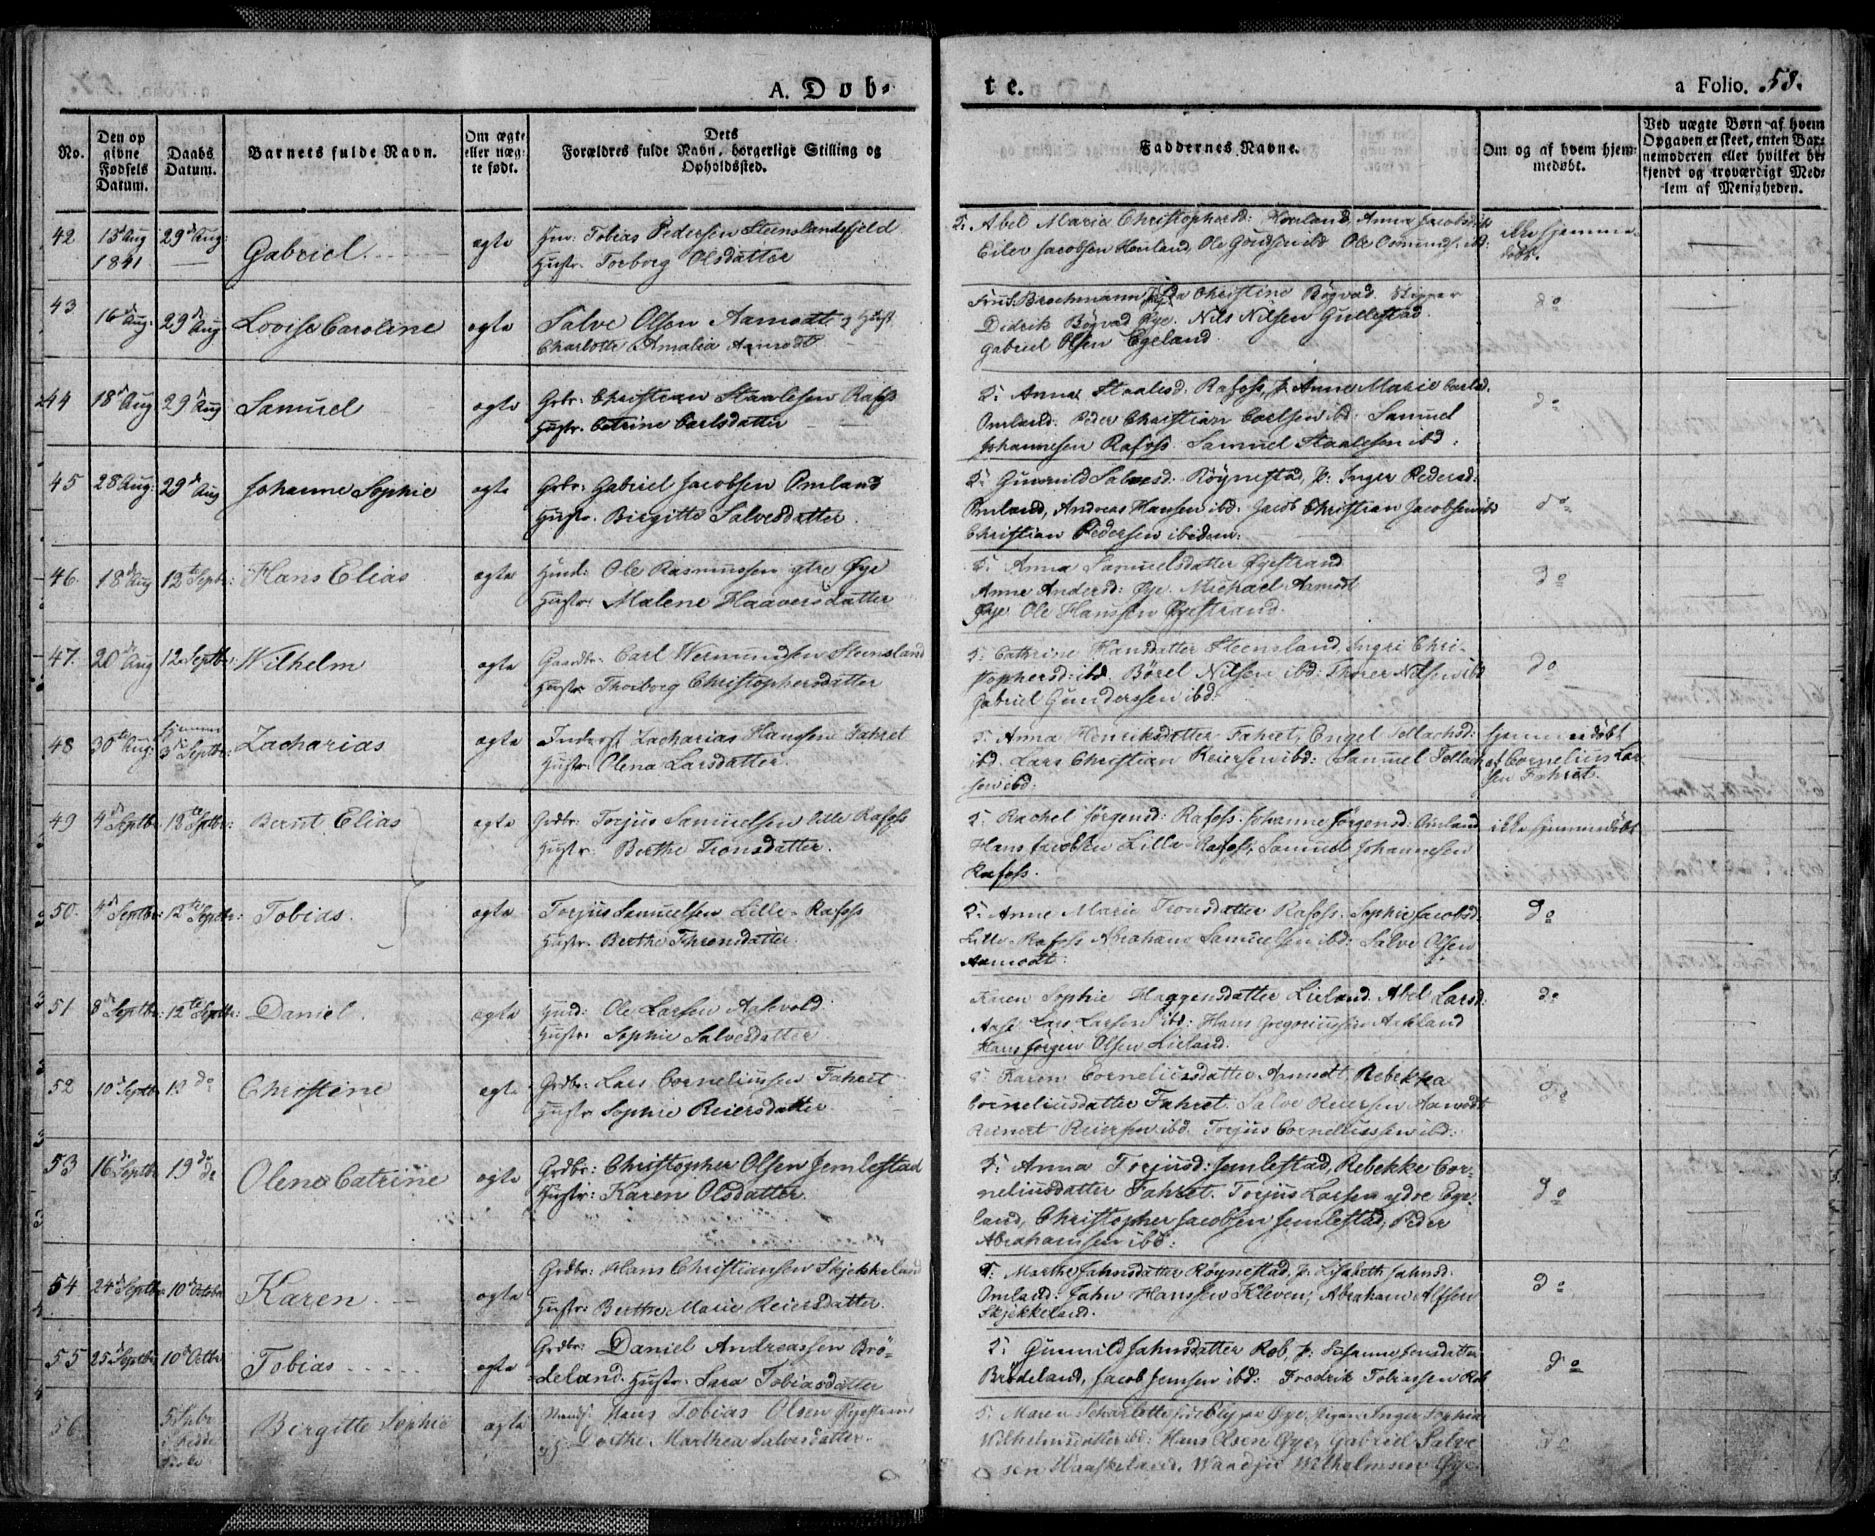 A. Døb-
te.
a Folio. 58.
No.
Den op
givne
Fødsels
Datum.
Daabs
Datum.
Barnets fulde Navn.
Om ægte
eller uæg-
te født.
Dets
Forældres fulde Navn, borgerlige Stilling og
Opholdssted.
Faddernes Navne.
Om og af hvem hjem-
medøbt.
Ved uægte Børn af hvem
Opgaven er skeet, enten Bar-
nemoderen eller hvilket be-
kjendt og troværdigt Med-
lem af Menigheden.
42 13d Aug 1841 29d Aug: Gabriel ægte
Tobias Pedersen Steenslandsfjeld
Hustr: Torborg Olsdatter
Abel Maria Christophersd: Anna Jacobsd: ibd
Eiler Jacobsen Ole Ole Osmunds. ibd:
ikke hjemme-
døbt.
43 16d Aug: 29d Aug Lovise Caroline ægte
Salve Olsen Aamodt og Hust.
Charlotte Amalia Aamodt
Brochmann, Christine Bøgvad. Skipper
Didrik Bøgvad Øye. Nils Nilsen Gullestad.
Gabriel Olsen Egeland.
do
44 18d Aug 29d Aug Samuel ægte
Grbr: Christian Staalesen Rafoss
Hustr. Catrine Carlsdatter
F: Anna Staalesd: Rafoss, p: Anne Marie Carlsd.
Omland. Peder Christian Carlsen ibd: Samuel
Johannesen Rafoss. Samuel Staalesen ibd:
do
45 28 Aug: 29d Aug Johanne Sophie ægte
Grbr: Gabriel Jacobsen Omland
Hustr. Birgitte Salvesdatter.
F: Gunnild Salvesd: Røynestad, p: Inger Pedersd:
Omland, Andreas Hansen ibd: Jacob Christian Jacobsen ibd
Christian Pedersen ibidem:
do
46. 18d Aug 12te Septbr: Hans Elias ægte
Huusd: Ole Rasmussen ytre Øye
Hustr Malene Haaversdatter
F: Anna Samuelsdatter Øyestrand
Anne Andersd: Øye. Michael Aamodt
Øye Ole Hanssen Øyestrand.
do
47. 20d Aug 12te Septbr: Wilhelm ægte
Gaardbr: Carl Wermundsen Steensland
Hustr Thorborg Christophersdatter
F: Cathrine Hansdatter Steensland, Ingri Chri-
stophersd: ibd. Børel Nilsen ibd: Thorer Nilsen ibd
Gabriel Gunderssen ibd:
do
48 30te Aug: hjemme 3d Septbr: Zacharias ægte
Inderst Zacharias Hanssen Fahret
Hustr: Olena Larsdatter.
F: Anna Henriksdatter Fahret, Engel Tellachsd:
ibd. Lars Christian Reiersen ibd: Samuel Tellach
sen ibd:
hjemmedøbt
af Cornelius Lar-
sen Fahret.
49 4d Septbr 12te Septbr: Bernt Elias ægte
Grdbr: Torjus Samuelsen Lille Rafoss
Hustr. Berthe Tronsdatter.
F: Rachel Jørgensd: Rafoss. Johanne Jørgensd: Omland
Hans Jacobsen Lille Rafoss, Samuel Johannesen
Rafoss.
ikke hjemmedøbt
50. 4d Septbr: 12te Septbr: Tobias. ægte
Torjus Samuelsen Lille-Rafoss
Hustr: Berthe Thronsdatter.
F: Anne Marie Tronsdatter Rafoss. Sophie Jacobsd:
Lille Rafoss Abraham Samuelsen ibd: Salve Olsen
Aamodt:
do
51 8d Septbr: 12te Septbr: Daniel. ægte
Huusd: Ole Larsen
Hustr: Sophie Salvesdatter.
Karen Sophie Haagensdatter Lieland. Abel Larsd:
Aase Lars Larsen ibd: Hans Gregoriussen
Hans Jørgen Olsen Lieland.
do
52 10d Septbr 12 do Christine ægte
Grdbr: Lars Corneliussen Fahret
Hustr Sophie Reiersdatter
F: Karen Corneliusdatter Aamodt, Rebekka
Corneliusdatter Fahret. Salve Reiersen Aamodt
Reinert Reiersen ibd. Torjus Corneliussen ibd:
do
53 16d Septbr 19de do Olene Catrine ægte
Grdbr: Christopher Olsen Jemlestad
Hustr: Karen Olsdatter.
F: Anna Torjusd: Jemlestad, Rebekke Cor-
neliusdatter Fahret. Torjus Larsen ydre Ege-
land, Christopher Jacobsen Jemlestad, Peder
Abrahamsen ibd:
do
54 24d Septbr 10d October Karen ægte
Grdbr: Hans Christiansen Skjekkeland
Hustr: Berthe Marie Reiersdatter.
F: Marthe Jahnsdatter Røynestad, p: Lisabeth Jahnsd:
Omland. Jahn Hanssen Kleven, Abraham Alfsen
Skjekkeland.
do
55 25d Septbr 10d Octbr Tobias ægte
Grdbr: Daniel Andreassen Brø-
deland. Hustr: Sara Tobiasdatter
F: Gunnild Jahnsdatter Rob, p: Susanne Jensdatter
Brødeland, Jacob Jensen ibd: Fredrik Tobiassen Rob
do
56 Birgitte Sophie ægte
Hans Tobias Olsen Øyestrand
og Dorthe Marthea Salvesdatter.
F: Maren Scharlotte Øye, Inger Sophia
Wilhelmsdatter ibd: Hans Olsen Øye, Gabriel Salve
sen Haaskeland, Wilhelmsen Øye
do